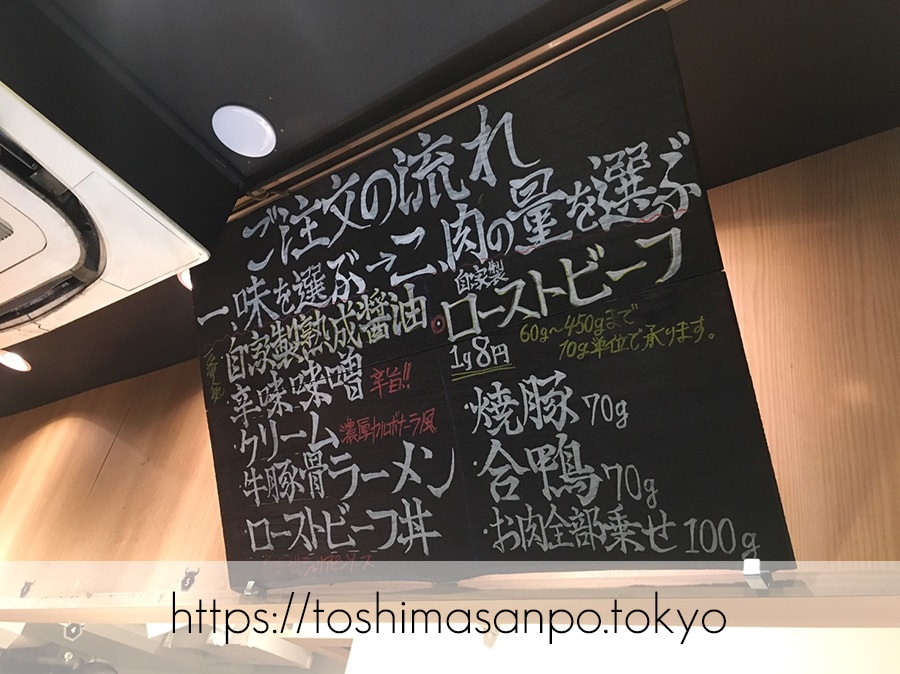 ご注文の流れ
一、味を選ぶ→二、肉の量を選ぶ
自家製熟成醤油
辛味味噌 辛旨!!
・クリーム 濃厚カルボナーラ風
・牛豚骨ラーメン
・ローストビーフ丼
自家製
ローストビーフ
1g8円 60g〜450gまで
10g単位で承ります。
・焼豚 70g
・合鴨 70g
・お肉全部乗せ 100g
https://toshimasanpo.tokyo